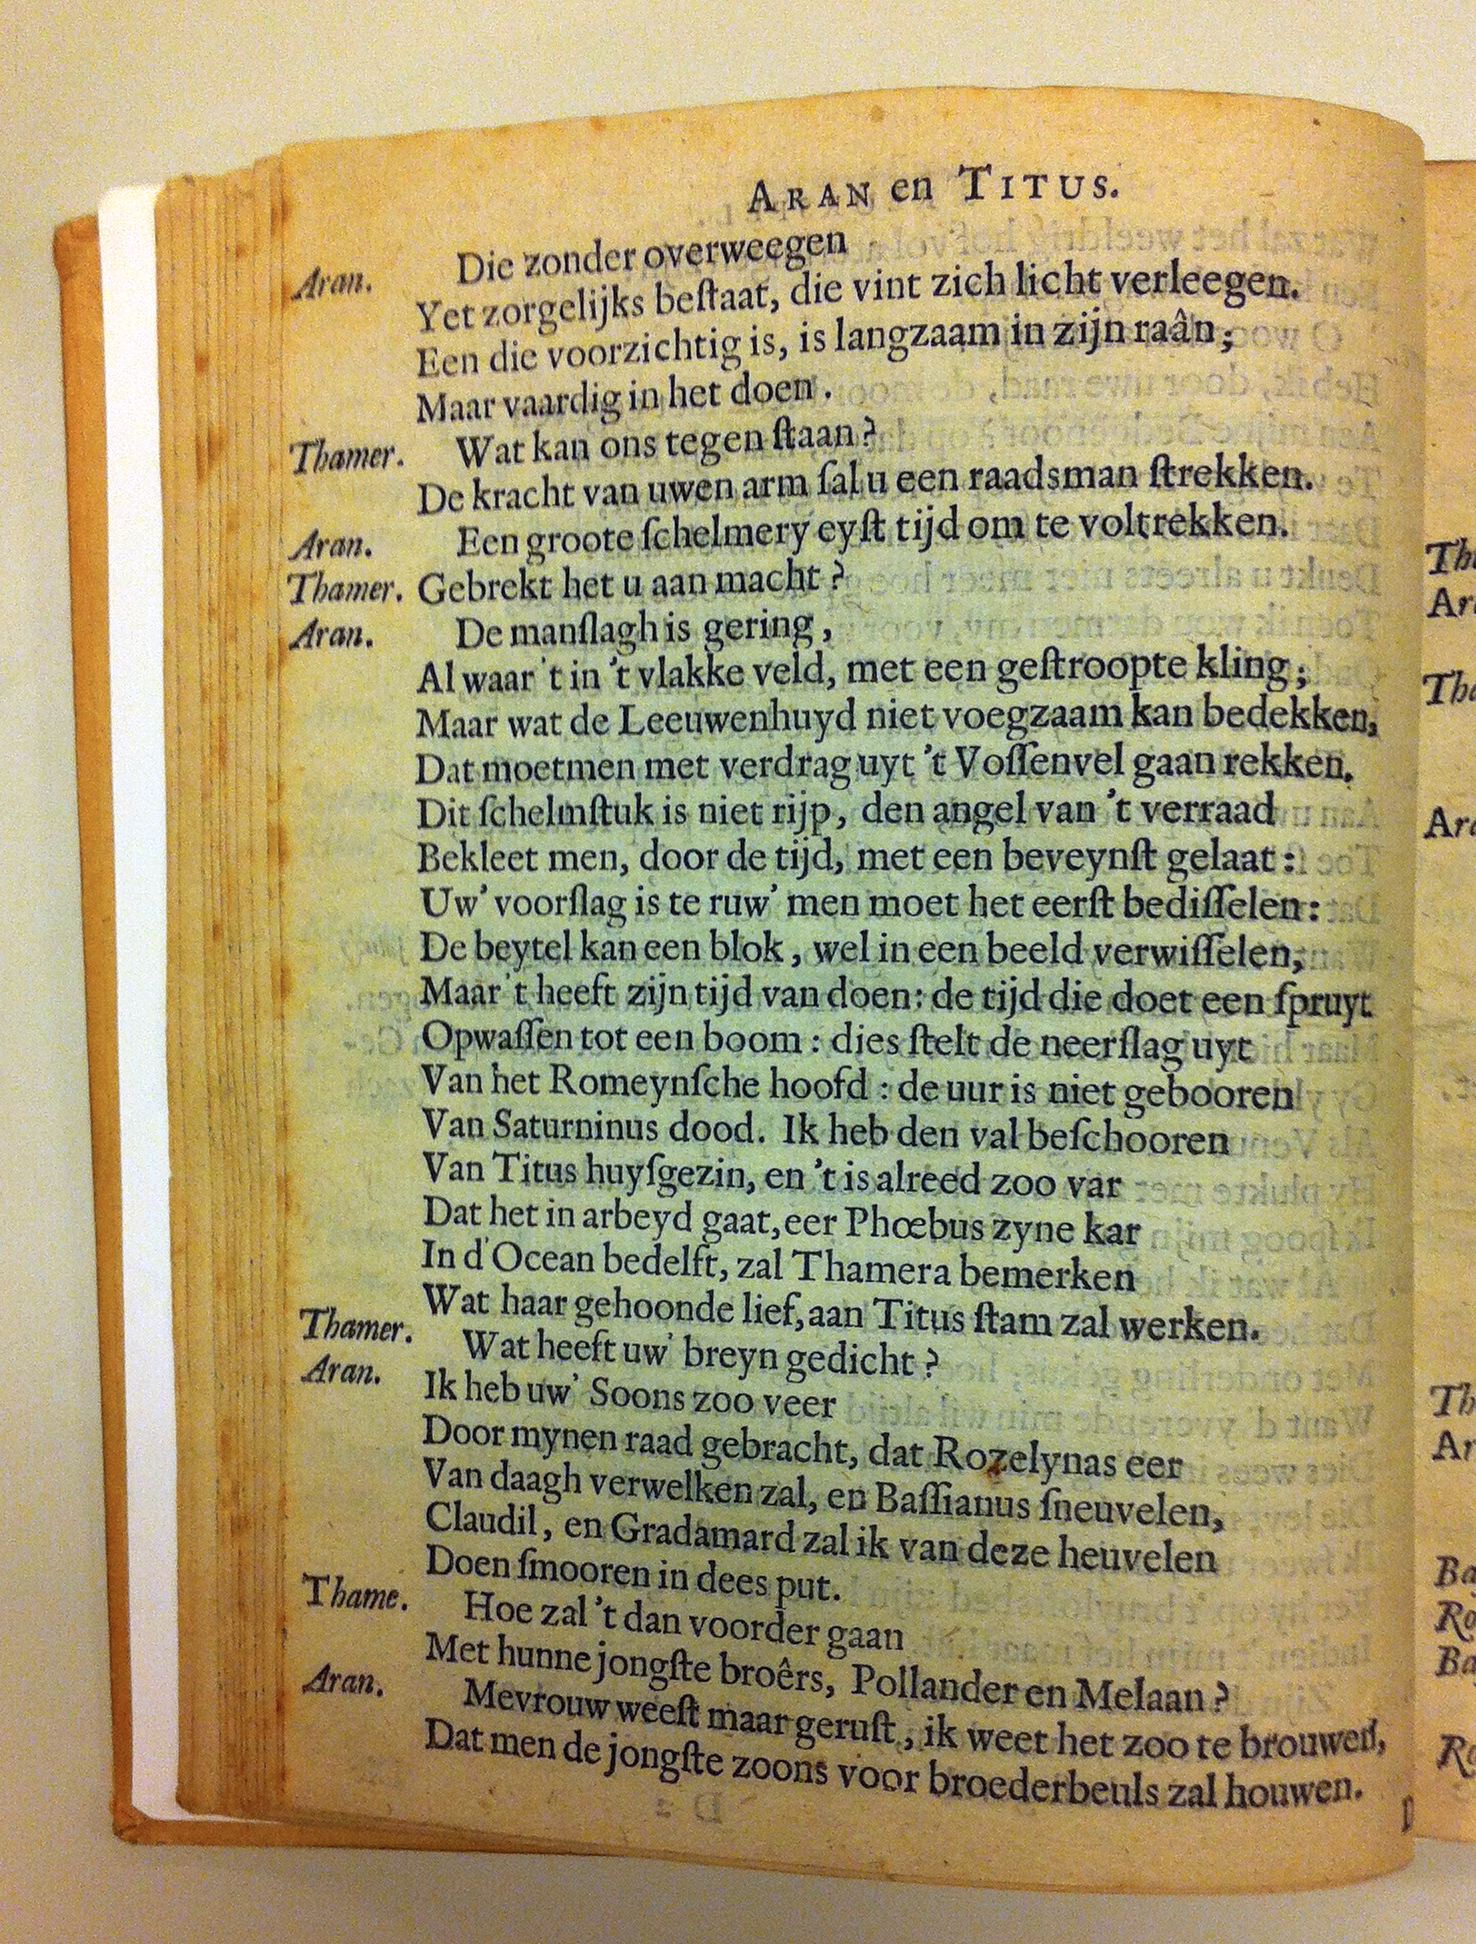 ARAN en TITUS.
Aran. Die zonder overweegen
Yet zorgelijks beſtaat, die vint zich licht verleegen.
Een die voorzichtig is, is langzaam in zijn raân;
Maar vaardig in het doen.
Thamer. Wat kan ons tegen ſtaan?
De kracht van uwen arm ſal u een raadsman ſtrekken.
Aran. Een groote ſchelmery eyſt tijd om te voltrekken.
Thamer. Gebrekt het u aan macht?
Aran. De manſlagh is gering,
Al waar 't in 't vlakke veld, met een geſtroopte kling;
Maar wat de Leeuwenhuyd niet voegzaam kan bedekken,
Dat moetmen met verdrag uyt 't Voſſenvel gaan rekken.
Dit ſchelmſtuk is niet rijp, den angel van 't verraad
Bekleet men, door de tijd, met een beveynſt gelaat:
Uw' voorſlag is te ruw' men moet het eerſt bediſſelen:
De beytel kan een blok, wel in een beeld verwiſſelen,
Maar 't heeft zijn tijd van doen: de tijd die doet een ſpruyt
Opwaſſen tot een boom: dies ſtelt de neerſlag uyt
Van het Romeynſche hoofd: de uur is niet gebooren
Van Saturninus dood. Ik heb den val beſchooren
Van Titus huyſgezin, en 't is alreed zoo var
Dat het in arbeyd gaat, eer Phœbus zyne kar
In d'Ocean bedelft, zal Thamera bemerken
Wat haar gehoonde lief, aan Titus ſtam zal werken.
Thamer. Wat heeft uw' breyn gedicht?
Aran. Ik heb uw' Soons zoo veer
Door mynen raad gebracht, dat Rozelynas eer
Van daagh verwelken zal, en Baſſianus ſneuvelen,
Claudil, en Gradamard zal ik van deze heuvelen
Doen ſmooren in dees put.
Thame. Hoe zal 't dan voorder gaan
Met hunne jongſte broêrs, Pollander en Melaan?
Aran. Mevrouw weeſt maar geruſt, ik weet het zoo te brouwen,
Dat men de jongſte zoons voor broederbeuls zal houwen.